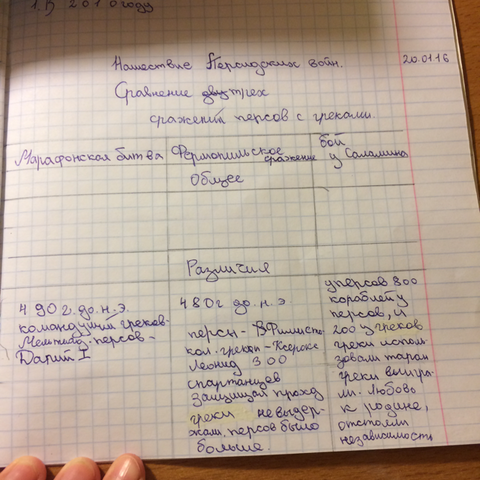 1. В 2010 году
Нашествие Персидских войн.
20.01.16
Сравнение трех
сражений персов с греками.
Марафонская битва
Фермопильское сражение
бой у Саламина
Общее
Различия
490 г. до. н. э.
командущий греков-
персов -
Дарий I
480 г до. н. э.
персы -
кол. греков - Ксеркс
Леонид 300
спартанцев
защищая проход
греки невыдер-
жали, персов было
больше.
у персов 800
кораблей у
персов, и
200 у греков
греки исполь
зовали таран
греки выигра-
ли. Любовь
к родине,
отстояли
независимость